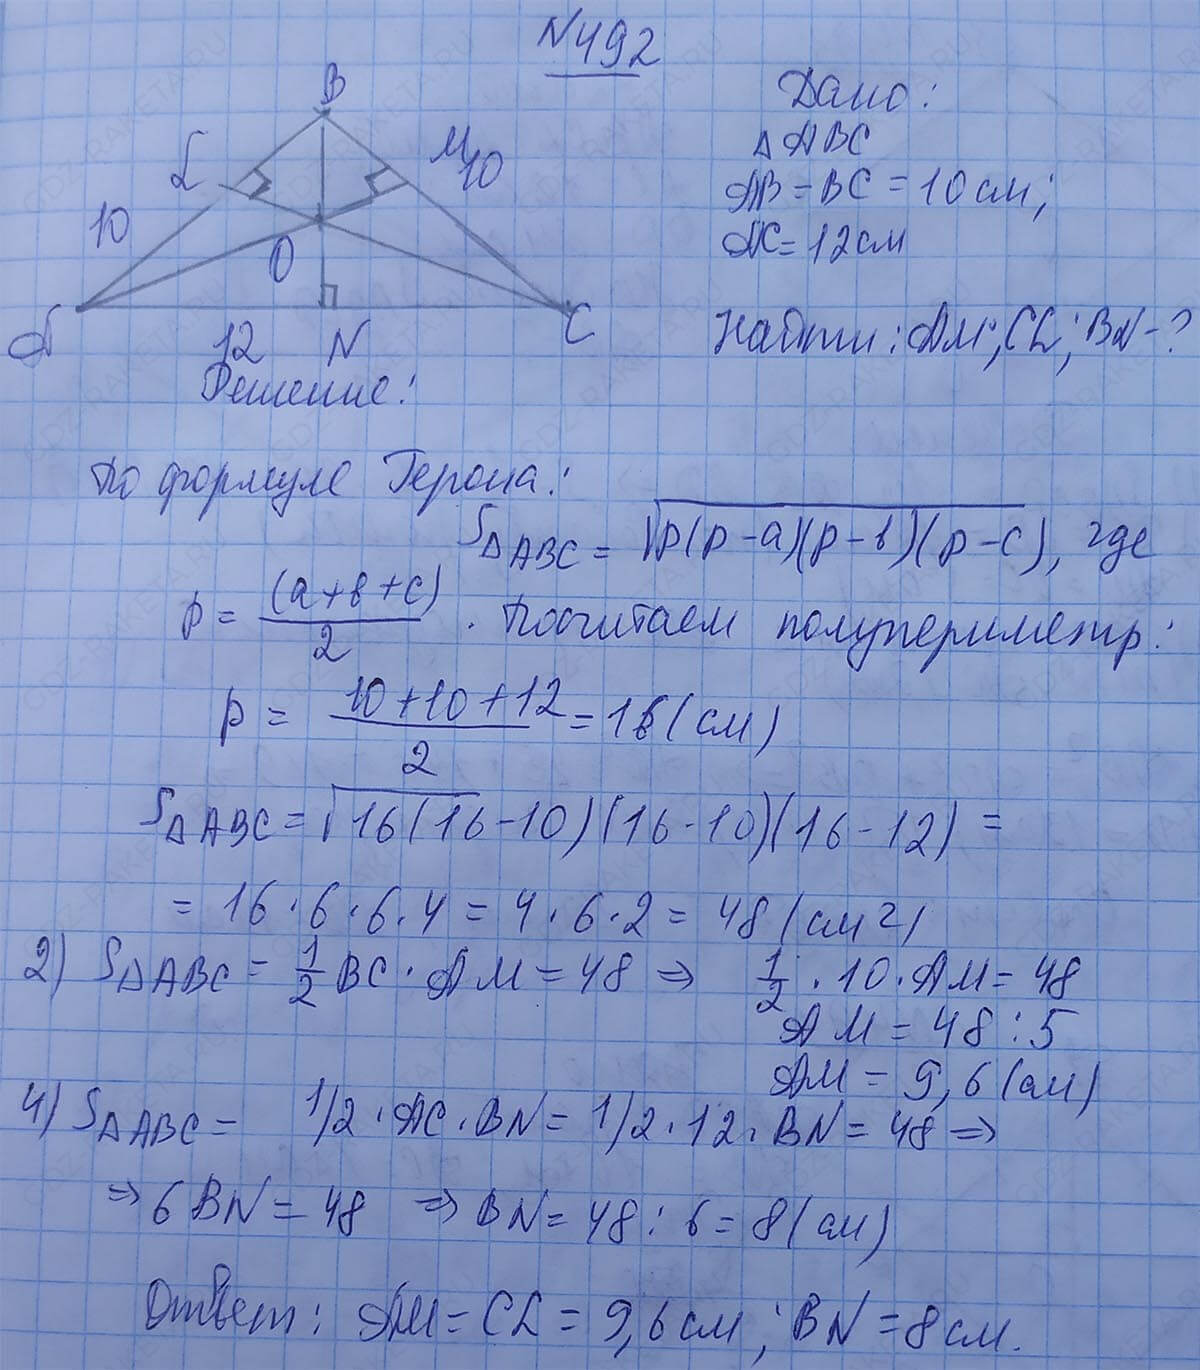 N492
B
Дано:
Δ ABC
AB = BC = 10 см;
AC = 12 см
Найти: AM; CL; BN - ?
L
M
10
10
O
A
12
N
C
Решение:
По формуле Герона:
S Δ ABC = √p(p-a)(p-b)(p-c), где
p = (a+b+c)/2 . Посчитаем полупериметр:
p = 10+10+12/2 = 16 (см)
S Δ ABC = √16(16-10)(16-10)(16-12) =
= 16·6·6·4 = 4·6·2 = 48 (см2)
2) S Δ ABC = 1/2 BC · AM = 48 ⇒ 1/2 · 10 · AM = 48
AM = 48 : 5
AM = 9,6 (см)
4) S Δ ABC = 1/2 · AC · BN = 1/2 · 12 · BN = 48 ⇒
⇒ 6 BN = 48 ⇒ BN = 48 : 6 = 8 (см)
Ответ: AM = CL = 9,6 см; BN = 8 см.